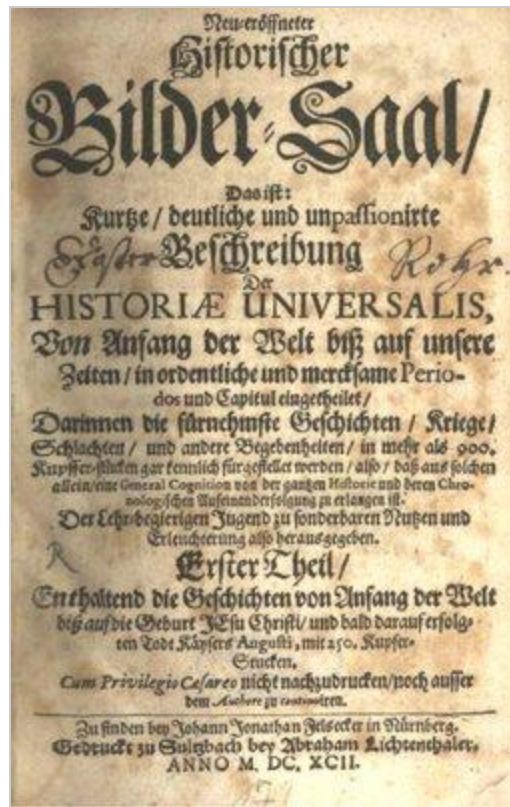 Neu-eröffneter
Historischer
Bilder-Saal/
Das ist:
Kurtze / deutliche und unpassionirte
Beschreibung Rohr.
Der
HISTORIÆ UNIVERSALIS,
Von Anfang der Welt biß auf unsere
Zeiten / in ordentliche und mercksame Perio-
dos und Capitul eingetheilet /
Darinnen die fürnehmste Geschichten / Kriege /
Schlachten / und andere Begebenheiten / in mehr als 900.
Kupffer-stücken gar kenntlich fürgestellet werden / also / daß aus solchen
allein / eine General Cognition von der gantzen Historie und deren Chro-
nologischen Aufeinanderfolgung zu erlangen ist.
Der Lehr-begierigen Jugend zu sonderbaren Nutzen und
Erleuchterung also herausgegeben.
R
Erster Theil /
Enthaltend die Geschichten von Anfang der Welt
biß auf die Geburt JEsu Christi / und bald darauf erfolg-
ten Todt Käysers Augusti, mit 250. Kupfer-
Stucken.
Cum Privilegio Cæsareo nicht nachzudrucken / noch ausser
dem Authore zu continuiren.
Zu finden bey Johann Jonathan Felsecker in Nürnberg.
Gedruckt zu Sultzbach bey Abraham Lichtenthaler,
ANNO M. DC. XCII.